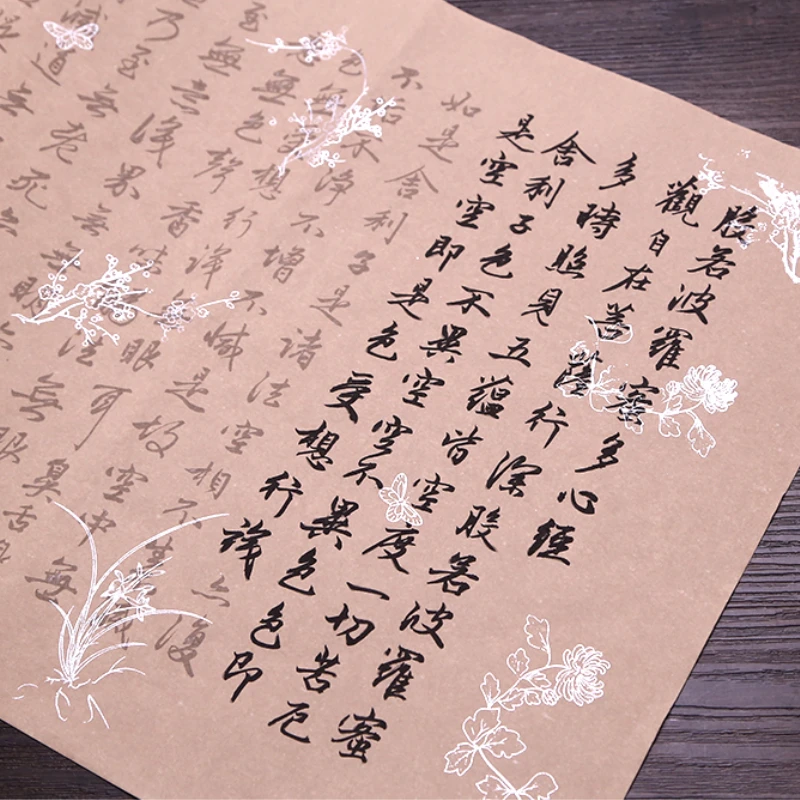 般若波羅蜜多心經
觀自在菩薩行深般若波羅蜜
多時照見五蘊皆空度一切苦厄
舍利子色不異空空不異色色即
是空空即是色受想行識亦復
如是舍利子是諸法空相不生
不垢不淨不增不減是故空中無
色無受想行識無眼耳鼻舌身
無色聲香味觸法無眼
乃至無意識界無無明亦
無老死亦
道